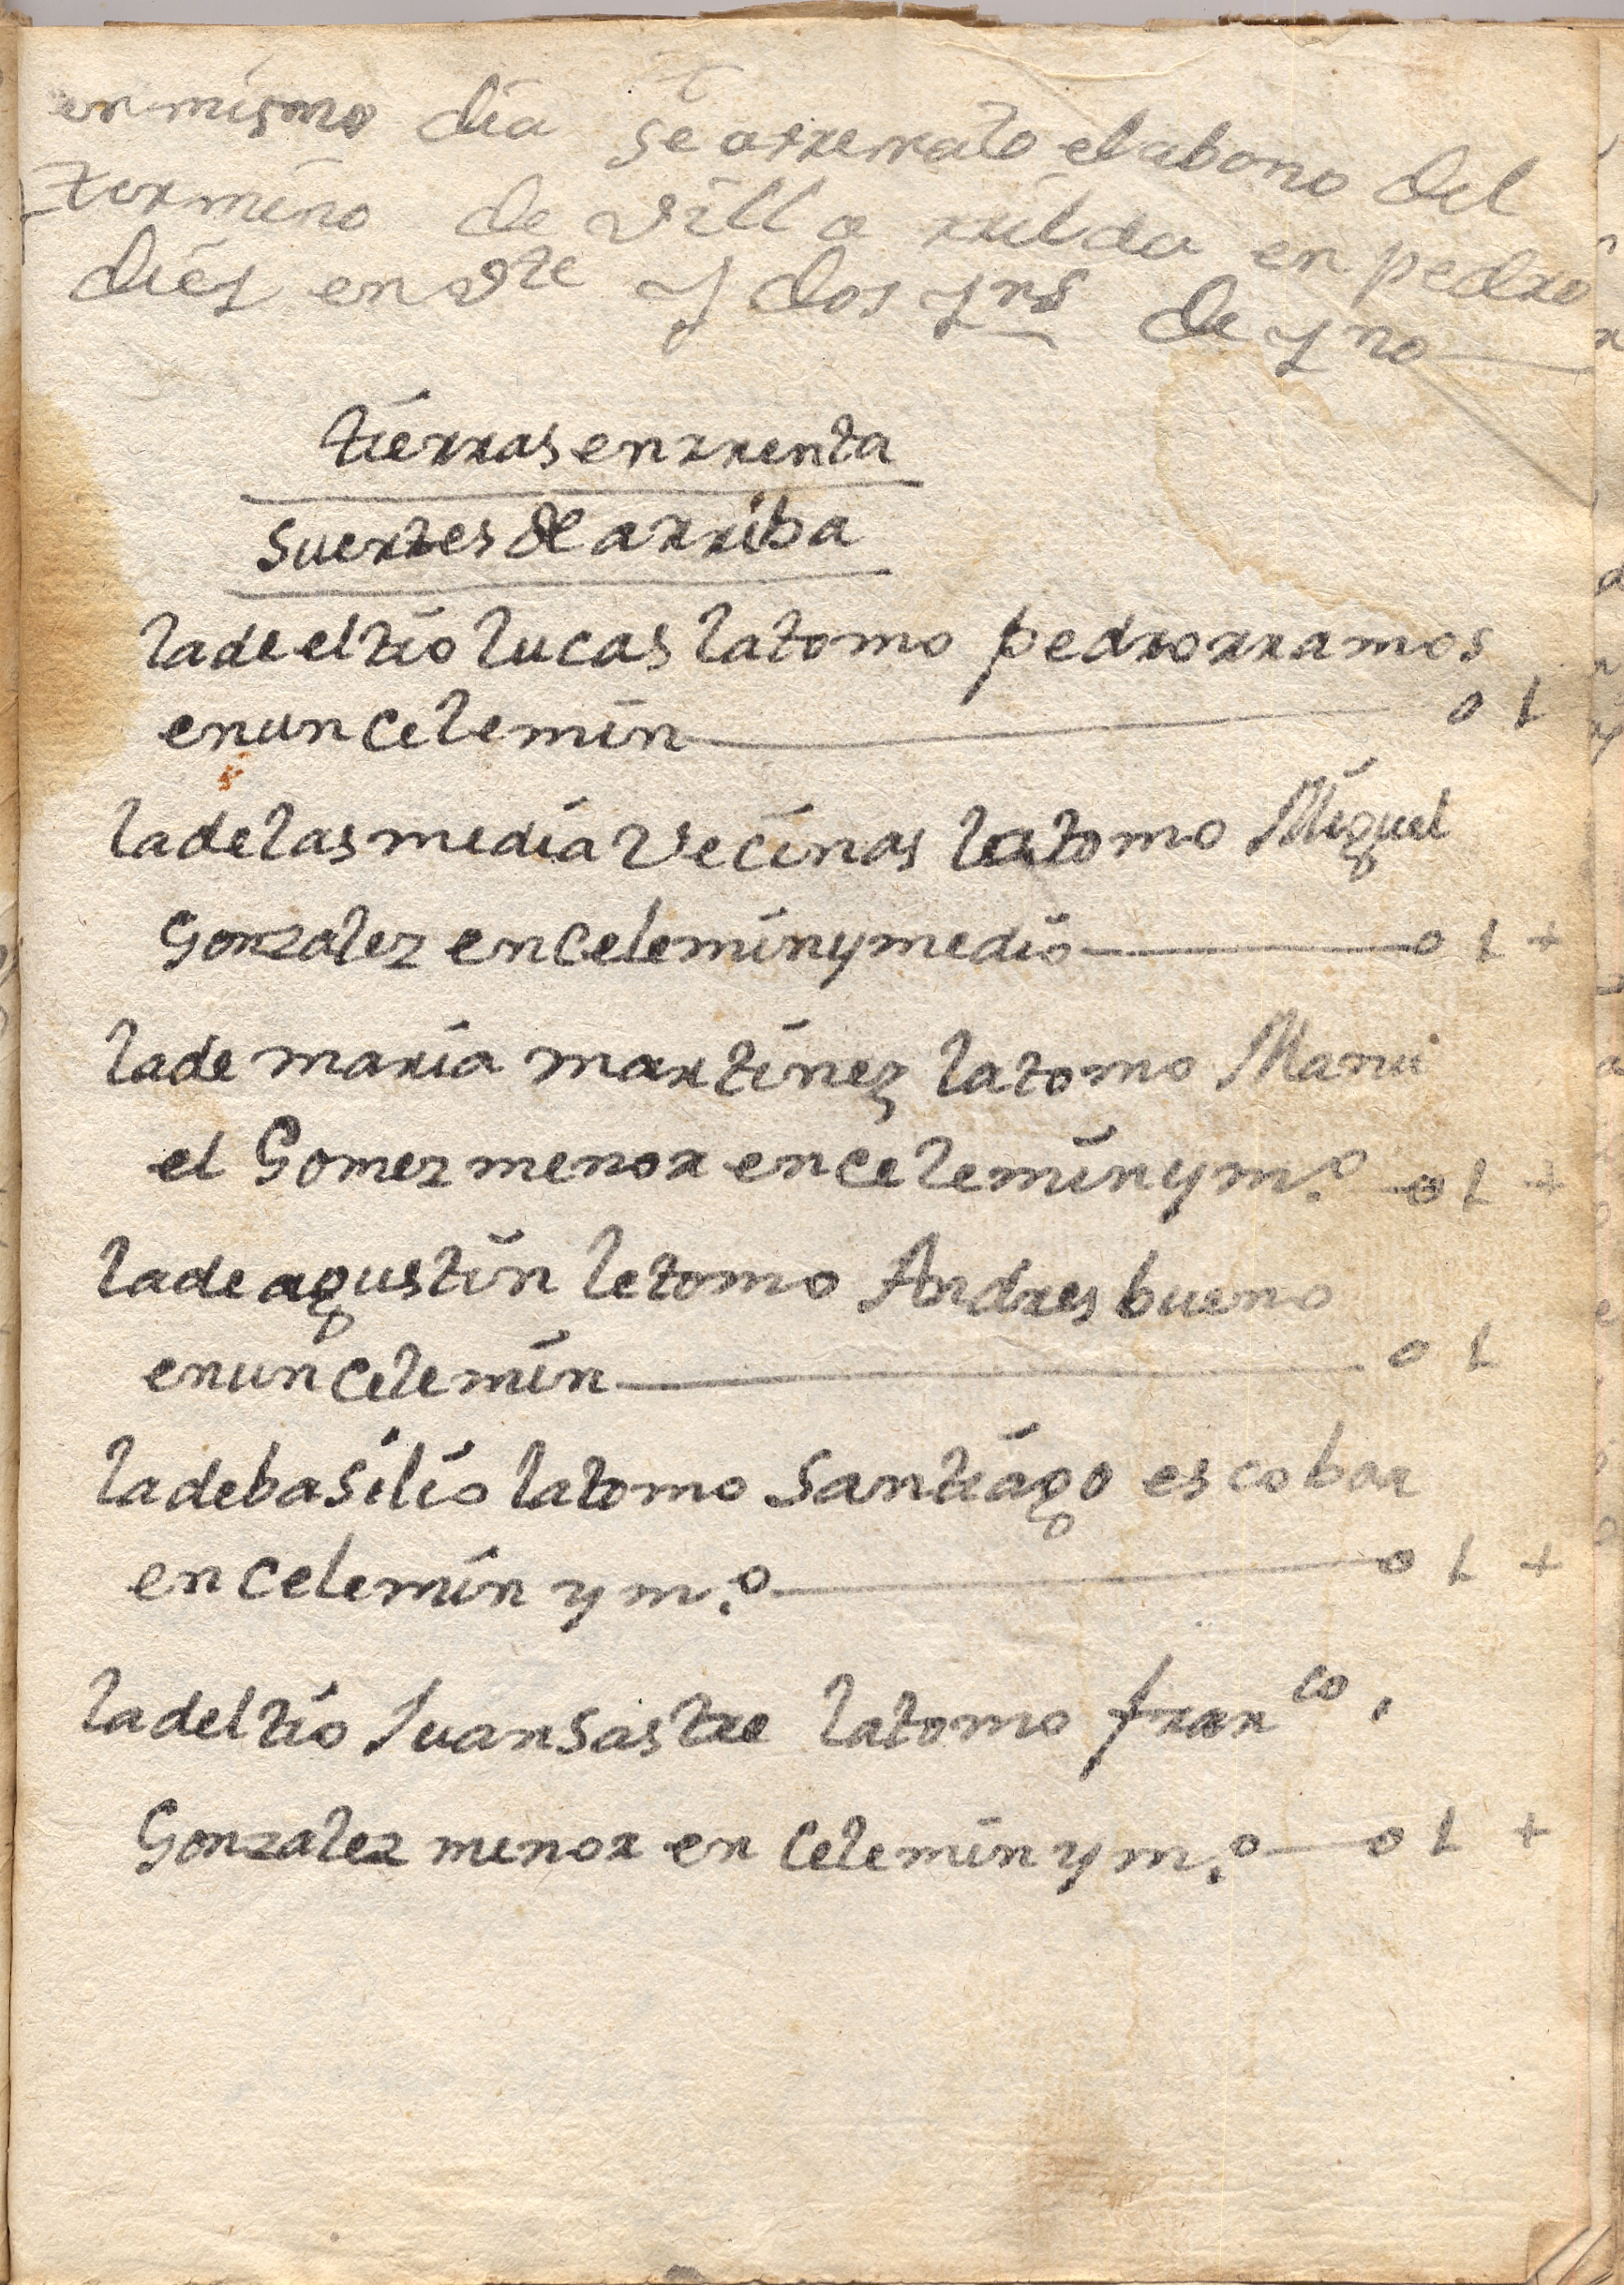 en mismo dia se arremato el abono del
termino de villa rrilda en pedro
dies en vte y dos rrs de
tierras en rrenta
suertes de arriba
la de el tio lucas la tomo pedro rramos
en un celemin 0 1
la de las media vecinas la tomo Miguel
Gonzalez en celemin y medio 0 1 +
la de maria martinez la tomo Manu
el Gomez menor en celemin y m.o 0 1 +
la de agustin le tomo Andres bueno
en un celemin 0 1
la de basilio la tomo Santiago escobar
en celemin y m.o 0 1 +
la del tio Juan sastre la tomo franco
Gonzalez menor en celemin y m.o 0 1 +